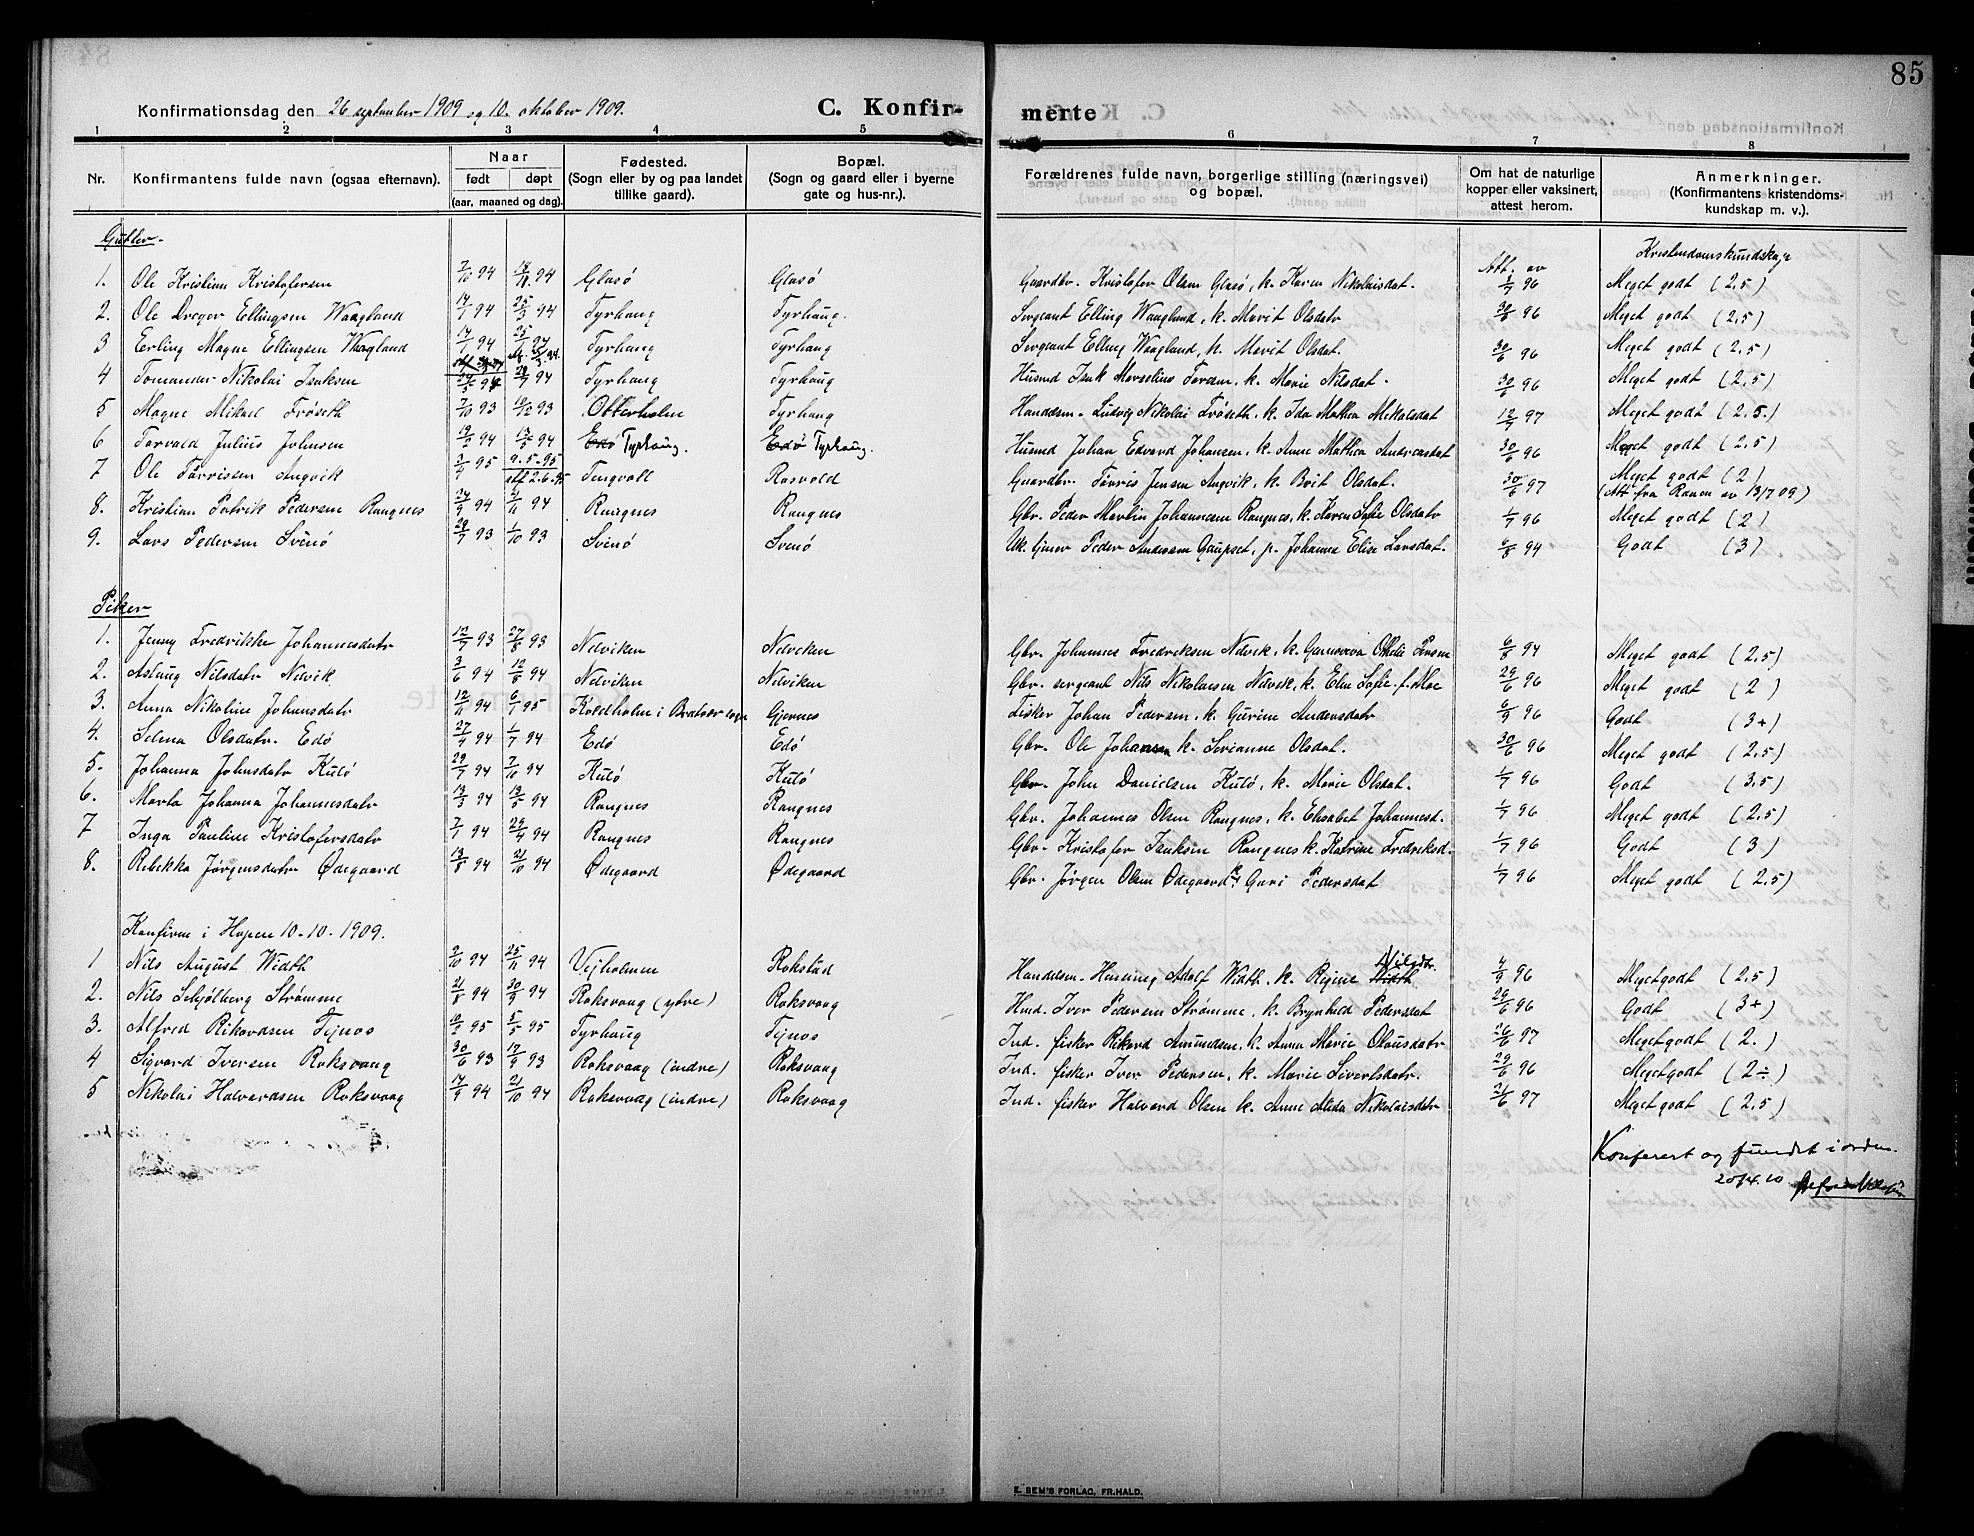 85
Konfirmationsdag den 26 september 1909 og 10. oktober 1909. C. Konfirmerte
1 2 3 4 5 6 7 8
Nr. Konfirmantens fulde navn (ogsaa efternavn). Naar født døpt (aar, maaned og dag). Fødested. (Sogn eller by og paa landet tillike gaard). Bopæl. (Sogn og gaard eller i byerne gate og hus-nr.). Forældrenes fulde navn, borgerlige stilling (næringsvei) og bopæl. Om hat de naturlige kopper eller vaksinert, attest herom. Anmerkninger. (Konfirmantens kristendomskundskap m. v.).
Gutter. Kristendomskundskap
1. Ole Kristian Kristofersen 7/10 94 18/11 94 Glasø Glasø Gaardbr. Kristofer Olsen Glasø, k. Karen Nikolaisdat. Att. av 1/7 96 Meget godt (2,5)
2. Ole Dreyer Ellingsen Waagland 14/1 94 25/3 94 Tyrhaug Tyrhaug. Sergeant Elling Waagland, k. Marit Olsdatr 30/6 96 Meget godt (2,5)
3 Erling Magne Ellingsen Waagland 14/1 94 25/3 94 Tyrhaug Tyrhaug Sergeant Elling Waagland, k. Marit Olsdat. 30/6 96 Meget godt (2,5)
4 Tomander Nikolai Isaksen 24/5 94 29/7 94 Tyrhaug Tyrhaug Husmd Isak Marselius Tordsen, k. Marie Nilsdat. 30/6 96 Meget godt (2,5)
5 Magne Mikael Frøseth 7/10 93 10/12 93 Otterholm Tyrhaug Handelsm. Ludvig Nikolai Frøseth, k. Ida Mathea Mikalsdat 12/7 97 Meget godt (2,5.)
6 Torvald Julius Johnsen 19/2 94 13/5 94 Edø Tyrhaug. Edø Tyrhaug. Husmd Johan Edvard Johansen, k. Anne Mathea Andreasdat 30/6 96 Meget godt (2,5)
7 Ole Tørrisen Angvik 3/2 95 9.5.95 stf 2.6.95 Tingvoll Rosvold Gaardbr. Tørris Jensen Angvik, k. Brit Olsdat. 30/6 97 Meget godt (2)
(Att. fra Ranem av 13/7 09)
8. Kristian Patrik Pedersen Rangnes 24/9 94 21/11 94 Rangnes Rangnes Gbr. Peder Martin Johannesen Rangnes, k. Karen Sofie Olsdatr 1/7 96 Meget godt (2)
9. Lars Pedersen Svinø 29/7 93 1/10 93 Svinø Svinø Uk. tjener Peder Andersen Gaupset, p. Johanna Elise Larsdat. 6/8 94 Godt (3)
Piker
1. Jenny Fredrikke Johannesdatr 12/7 93 27/8 93 Nelviken Nelviken Gbr. Johannes Fredriksen Nelvik, k. Othelie Jensen 6/8 94 Meget godt (2,5)
2. Aslaug Nilsdatr Nelvik 3/6 94 12/8 94 Nelviken Nelviken Gbr. sergeant Nils Nikolaisen Nelvik, k. Elen Sofie f. Moe 29/6 96 Meget godt (2)
3. Anna Nikoline Johansdatr 12/11 94 6/1 95 Koldholm i Bratvær sogn Gjernes Fisker Johan Pedersen, k. Gurine Andersdatr 6/9 96 Godt (3+)
4. Selma Olsdatr. Edø 27/4 94 1/7 94 Edø Edø Gbr. Ole Johansen k. Serianne Olsdat. 30/6 96 Meget godt (2,5)
5. Johanna Johnsdatr Kulø 29/7 94 7/10 94 Kulø Kulø Gbr. John Danielsen Kulø, k. Marie Olsdat. 1/7 96 Godt (3,5)
6. Marta Johanna Johannesdatr 13/3 94 13/5 94 Rangnes Rangnes Gbr. Johannes Olsen Rangnes, k. Elisabet Johannesd. 1/7 96 Meget godt (2,5)
7 Inga Pauline Kristofersdatr 7/1 94 29/4 94 Rangnes Rangnes Gbr. Kristofer Isaksen Rangnes k. Katrine Fredriksd. 1/7 96 Godt (3)
8. Rebekka Jørgensdatr Ødegaard 13/8 94 21/10 94 Ødegaard Ødegaard Gbr. Jørgen Olsen Ødegaard k. Guri Pedersdat 1/7 96 Meget godt (2,5)
Konfirm i Hopen 10-10-1909.
1 Nils August Width 2/10 94 25/11 94 Vejholmen Rokstad Handelsm. Henning Adolf Width, k. Regine Width Nilsdtr. 4/9 96 Megetgodt (2,5)
2. Nils Schjølberg Strømme 21/8 94 30/9 94 Roksvaag (ytre) Roksvaag Husmd. Iver Pedersen Strømme, k. Brynhild Pedersdat 29/6 96 Godt (3+)
3. Alfred Rikardsen Tejnæs 10/2 95 5/5 95 Tyrhaug Tejnæs Ind. fisker Rikard Amundsen, k. Anna Marie Olausdatr 26/6 97 Megetgodt (2.)
4 Sigvard Iversen Roksvaag 30/6 93 17/9 93 Roksvaag (indre) Roksvaag Ind. fisker Iver Pedersen, k. Marie Sivertsdatr. 29/6 96 Megetgodt (2÷)
5 Nikolai Halvardsen Roksvaag 14/9 94 21/10 94 Roksvaag (indre) Roksvaag Ind. fisker Halvard Olsen k. Anne Alida Nikolaisdatr 21/6 97 Megetgodt (2,5)
Konferert og fundet i orden.
20/4.10
E. SEM'S FORLAG, FR.HALD.